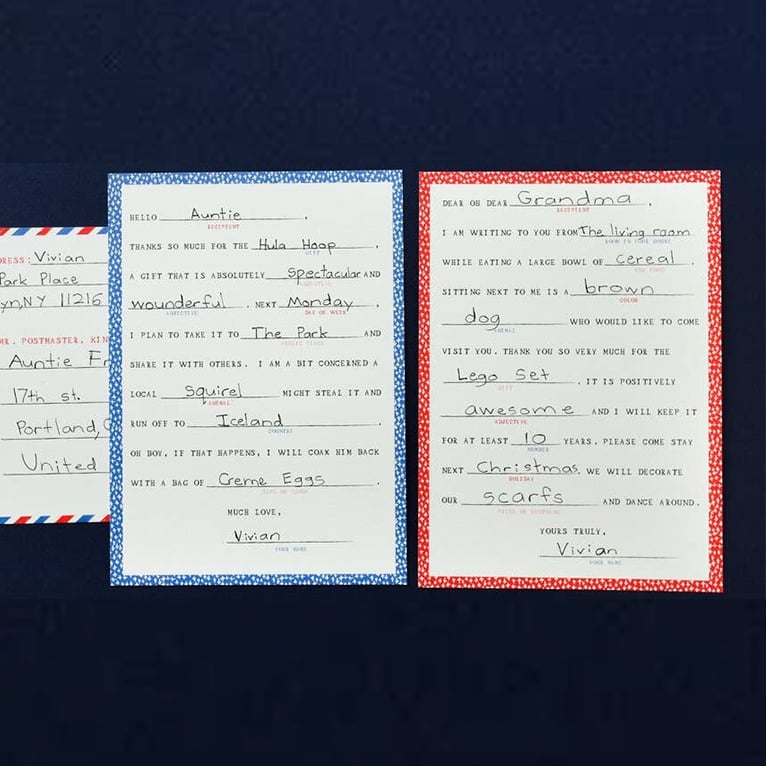 RESS: Vivian
Park Place
yn, NY 11216
MR. POSTMASTER, KIN
Auntie Fr
17th st.
Portland,
United
HELLO Auntie ,
RECIPIENT
THANKS SO MUCH FOR THE Hula Hoop ,
GIFT
A GIFT THAT IS ABSOLUTELY Spectacular AND
ADJECTIVE
wounderful . NEXT Monday ,
ADJECTIVE DAY OF WEEK
I PLAN TO TAKE IT TO The Park AND
PUBLIC PLACE
SHARE IT WITH OTHERS. I AM A BIT CONCERNED A
LOCAL squirel MIGHT STEAL IT AND
ANIMAL
RUN OFF TO Iceland .
COUNTRY
OH BOY, IF THAT HAPPENS, I WILL COAX HIM BACK
WITH A BAG OF Creme Eggs .
TYPE OF CANDY
MUCH LOVE,
Vivian
YOUR NAME
DEAR OH DEAR Grandma ,
RECIPIENT
I AM WRITING TO YOU FROM The living room
ROOM IN YOUR HOUSE
WHILE EATING A LARGE BOWL OF cereal .
SITTING NEXT TO ME IS A brown
COLOR
dog WHO WOULD LIKE TO COME
ANIMAL
VISIT YOU. THANK YOU SO VERY MUCH FOR THE
Lego Set . IT IS POSITIVELY
GIFT
awesome AND I WILL KEEP IT
ADJECTIVE
FOR AT LEAST 10 YEARS. PLEASE COME STAY
NUMBER
NEXT Christmas. WE WILL DECORATE
HOLIDAY
OUR scarfs AND DANCE AROUND.
YOURS TRULY,
Vivian
YOUR NAME